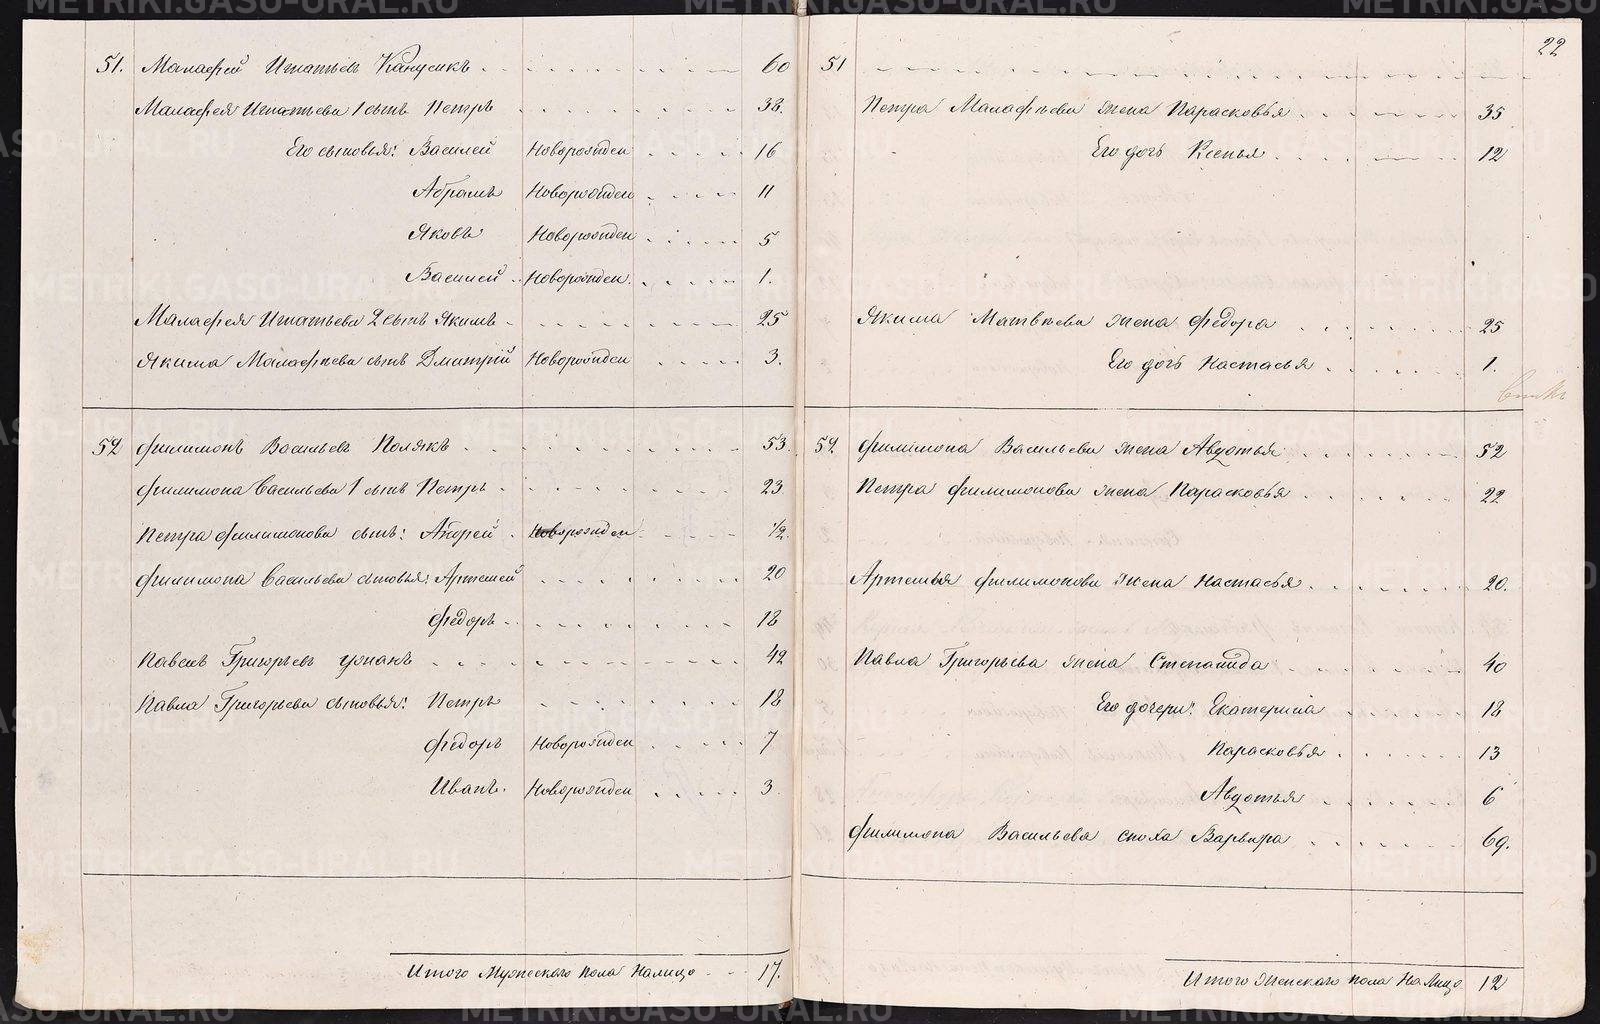 22
51. Малафей Игнатьев Канусикъ 60
Малафея Игнатьева 1 сынъ Петръ 38.
Его сыновья: Василей Новорожден 16
Абрамъ Новорожден 11
Яковъ Новорожден 5
Василей Новорожден 1.
Малафея Игнатьева 2 сынъ Якимъ 25
Якима Малафѣева сынъ Дмитрій Новорожден 3.
52 Филимонъ Васильевъ Полякъ 53.
Филимона Васильева 1 сынъ Петръ 23
Петра Филимонова сынъ: Андрей Новорожден 1/2.
Филимона Васильева сыновья: Артемей 20
Федоръ 18
Павелъ Григорьевъ 42
Павла Григорьева сыновья: Петръ 18
Федоръ Новорожден 7
Иванъ. Новорожден 3
Итого Мужескаго пола Налицо 17.
51
Петра Малафѣева жена Парасковья 35
Его дочь Ксенья 12
Якима Матвѣева жена Федора 25
Его дочь Настасья 1.
52 Филимона Васильева жена Авдотья 52
Петра Филимонова жена Парасковья 22
Артемья Филимонова жена Настасья 20.
Павла Григорьева жена Степанида 40
Его дочери: Екатерина 18
Парасковья 13
Авдотья 6
Филимона Васильева сноха Варвара 69.
Итого Женскаго пола На Лицо 12
METRIKI.GASO-URAL.RU